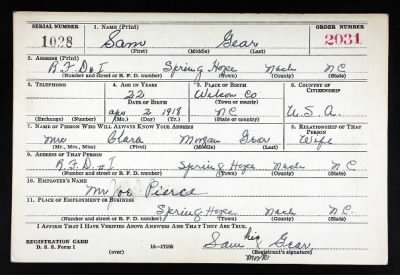 SERIAL NUMBER 1. NAME (Print) ORDER NUMBER
1028 Sam Gear 2031
(First) (Middle) (Last)
2. ADDRESS (Print)
R.F.D. # 1 Spring Hope Nash N C
(Number and street or R. F. D. number) (Town) (County) (State)
3. TELEPHONE 4. AGE IN YEARS 5. PLACE OF BIRTH 6. COUNTRY OF CITIZENSHIP
22 Wilson Co
DATE OF BIRTH (Town or county)
Apr 2 1918 N C U.S.A.
(Exchange) (Number) (Mo.) (Day) (Yr.) (State or country)
7. NAME OF PERSON WHO WILL ALWAYS KNOW YOUR ADDRESS 8. RELATIONSHIP OF THAT PERSON
Mrs Clara Morgan Gear Wife
(Mr., Mrs., Miss) (First) (Middle) (Last)
9. ADDRESS OF THAT PERSON
R.F.D. # 1 Spring Hope Nash N C
(Number and street or R. F. D. number) (Town) (County) (State)
10. EMPLOYER'S NAME
Mr Joe Pierce
11. PLACE OF EMPLOYMENT OR BUSINESS
Spring Hope Nash N C.
(Number and street or R. F. D. number) (Town) (County) (State)
I AFFIRM THAT I HAVE VERIFIED ABOVE ANSWERS AND THAT THEY ARE TRUE.
REGISTRATION CARD Sam his x mark Gear
D. S. S. Form 1 (over) 16—17105 (Registrant's signature)